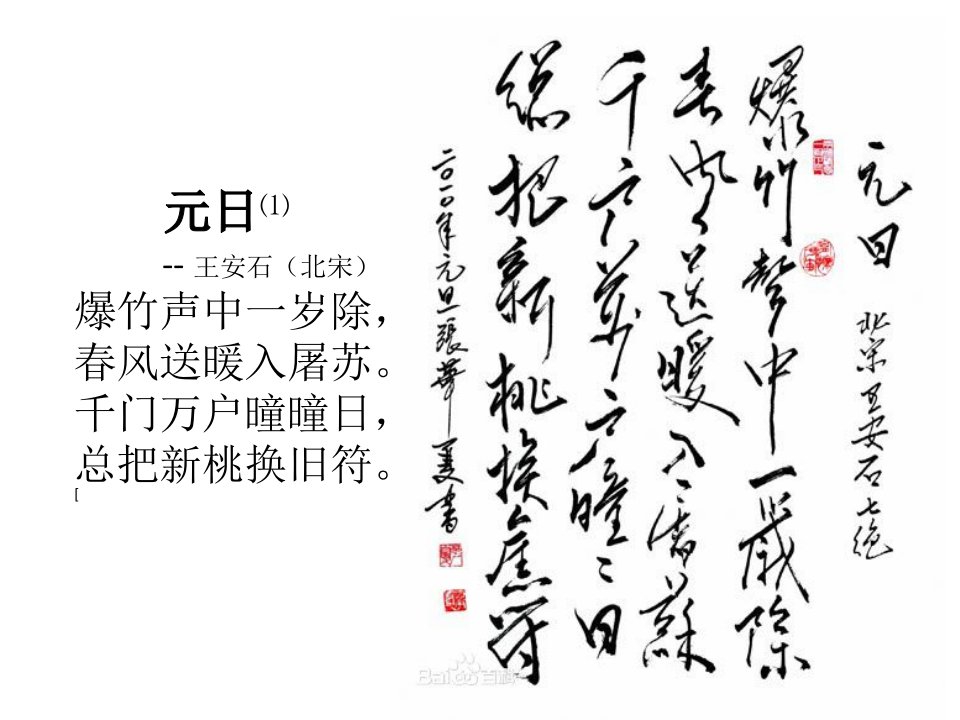 元日⑴
-- 王安石（北宋）
爆竹声中一岁除，
春风送暖入屠苏。
千门万户曈曈日，
总把新桃换旧符。
[
元日 北宋 王安石 七绝
爆竹聲中一歲除
春风送暖入屠蘇
千门萬户瞳〻日
總把新桃换舊符
二〇一〇年元旦 張華夏書
Bai 百科